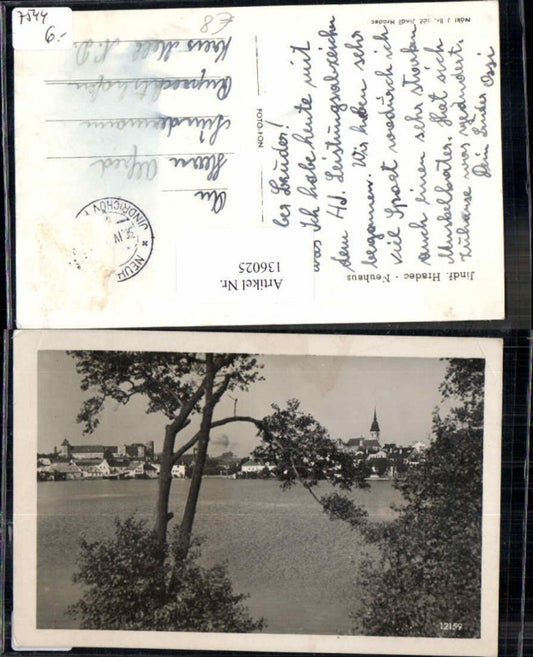 7544
9.-
€8
Nákl. J. Br. Jindř. Hradec
FOTO-FON
Jindř. Hradec - Neuhaus
An
Herrn Alfred
Lindermann
Ruprechtshofen
Kreis Melk N.D.
JINDŘICHŮV
NEUH
Artikel Nr.
136025
ber Bruder!
Ich habe heute mit
dem HJ. Leistungsabzeichen
begonnen. Wir haben sehr
viel Sport wodurch ich
auch einen sehr starken
Muskelkater. Hat sich
zuhause was verändert.
Dein Bruder Ossi
12159